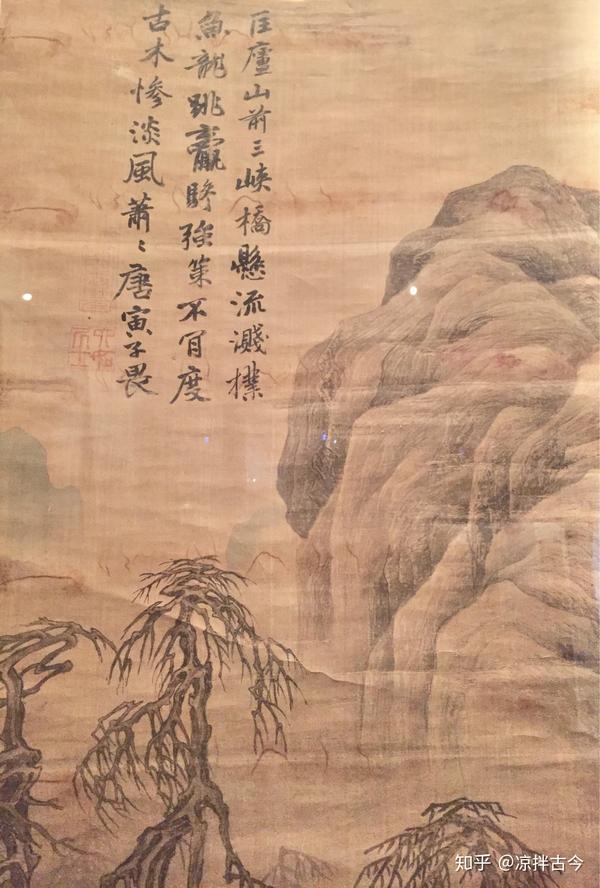 匡廬山前三峽橋懸流濺撲
魚龍跳羸驂強策不肎度
古木慘淡風蕭〻唐寅子畏
六如居士
知乎 @凉拌古今